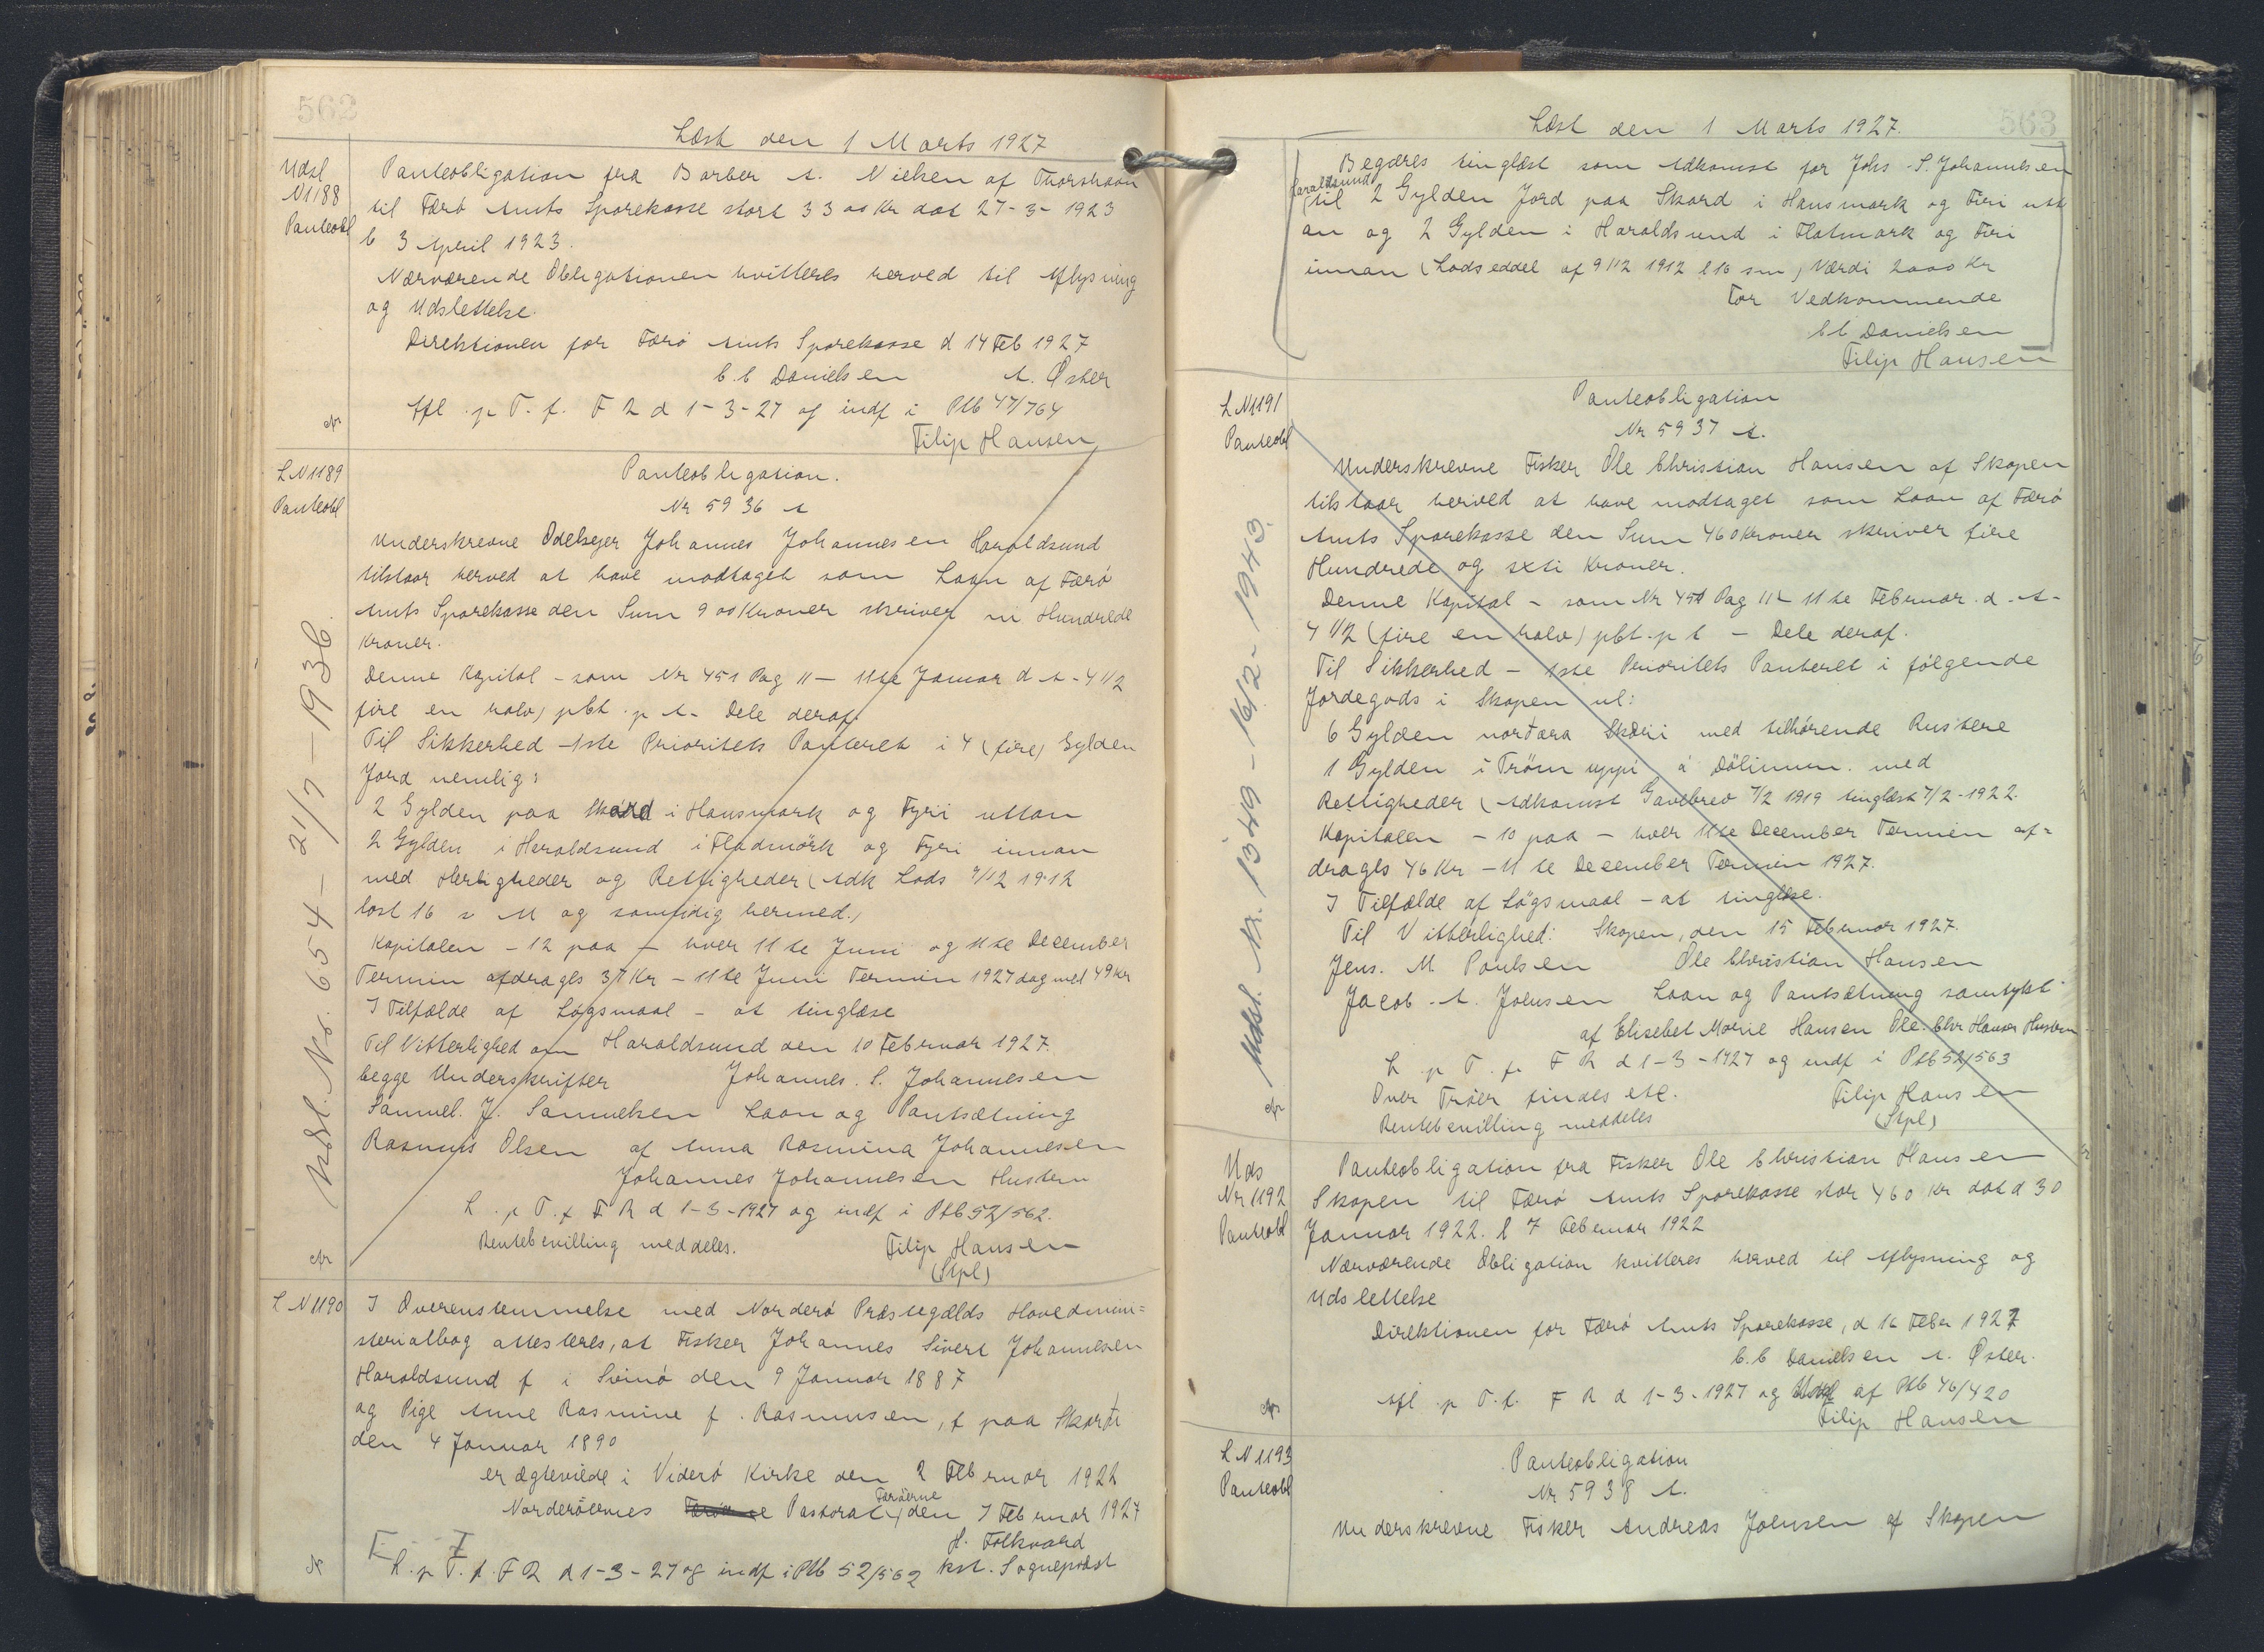 562
Læst den 1 Marts 1927
Udsl
N 1188
Panteobl
Panteobligation fra Barber A. Nielsen af Thorshavn
til Færø Amts Sparekasse stort 3300 Kr dat 27-3-1923
l 3 April 1923.
Nærværende Obligationen kvitteres herved til Aflysning
og Udslettelse.
Direktionen for Færø Amts Sparekasse d 14 Feb 1927
C. C Danielsen A. Øster
Afl. p T. f. F R d 1-3-27 og indf i Ptb 47/764
Filip Hansen
L N 1189
Panteobl
Panteobligation.
Nr 5936 A
Underskrevne Odelsejer Johannes Johannesen Haraldsund
tilstaar herved at have modtaget som Laan af Færø
Amts Sparekasse den Sum 900 Kroner skriver ni Hundrede
Kroner.
Denne Kapital - som Nr 451 Pag 11 - 11te Januar d A - 4 1/2
fire en halv) pCt. p A - Dele deraf.
Til Sikkerhed - 1ste Prioritets Panteret i 4 (fire) Gylden
Jord nemlig:
2 Gylden paa Skard i Hansmark og Fyri uttan
2 Gylden i Haraldsund i Fladmörk og Fyri innan
med Herligheder og Rettigheder (Adk Lods 9/12 1912
læst 16 s M og samtidig hermed.)
Kapitalen - 12 paa - hver 11te Juni og 11te December
Termin afdrages 37 Kr - 11te Juni Termin 1927 dog med 49 Kr
I Tilfælde af Løgsmaal - at tinglæse
Til Vitterlighed om Haraldsund den 10 Februar 1927.
begge Underskrifter Johannes. S. Johannesen
Samuel. J. Samuelsen Laan og Pantsætning
Rasmus Olsen af Anna Rasmina Johannesen
Johannes Johannesen Hustru
L. p T. f F R d 1-3-1927 og indf i Ptb 52/562.
Rentebevilling meddeles. Filip Hansen
(Stpl)
Udsl. No. 654 - 21/7 - 1936.
L N 1190
I Overenstemmelse med Norderø Præstegælds Hovedmini=
sterialbog attesteres, at Fisker Johannes Sivert Johannesen
Haraldsund f i Svinø den 9 Januar 1887
og Pige Anne Rasmine f. Rasmussen, f paa Skarði
den 4 Januar 1890
er ægteviede i Viderø Kirke den 2 Februar 1922
Færøerne
Norderöernes Pastorat, den 7 Februar 1927
H. Folkvard
L. p T. f. F R d 1-3-27 og indf i Ptb 52/562 kst. Sognepræst
563
Læst den 1 Marts 1927.
Begæres tinglæst som Adkomst for Johs. S. Johannesen
Haraldsund
til 2 Gylden Jord paa Skard i Hansmark og Firi utt
an og 2 Gylden i Haraldsund i Flatmark og Firi
innan (Lodseddel af 9/12 1912 l 16 sm) Værdi 2000 Kr
For Vedkommende
C C Danielsen
Filip Hansen
L N 1191
Panteobl
Panteobligation
Nr 5937 A.
Underskrevne Fisker Ole Christian Hansen af Skopen
tilstaar herved at have modtaget som Laan af Færø
Amts Sparekasse den Sum 460 Kroner skriver fire
Hundrede og sxti Kroner.
Denne Kapital - som Nr 451 Pag 11 - 11te Februar. d. A -
4 1/2 (fire en halv) pCt. p A - Dele deraf.
Til Sikkerhed - 1ste Prioritets Panteret i følgende
Jordegods i Skopen nl:
6 Gylden norðara Skæri med tilhørende Rustere
1 Gylden i Trøm uppi á Dölinum. med
Rettigheder (Adkomst Gavebrev 7/2 1919 tinglæst 7/2-1922.
Kapitalen - 10 paa - hver 11te December Termin af=
drages 46 Kr - 11te December Termin 1927.
I Tilfælde af Løgsmaal - at tinglæse.
Til Vitterlighed: Skopen, den 15 Februar 1927.
Jens. M Poulsen Ole Christian Hansen
Jacob. A. Joensen Laan og Pantsætning samtykt
af Elisebet Marie Hansen Ole. Chr Hansen Hustru
L. p T. f. F R d 1-3-1927 og indf i Ptb 52/563
Over Trøer findes etc. Filip Hansen
Rentebevilling meddeles (Stpl)
Udsl. Nr. 1349 - 16/2 - 1943.
Uds
Nr 1192
Panteobl
Panteobligation fra Fisker Ole Christian Hansen
Skopen til Færø Amts Sparekasse stor 460 Kr dat d 30
Januar 1922. l 7 Februar 1922
Nærværende Obligation kvitteres herved til Aflysning og
Udslettelse
Direktionen for Færø Amts Sparekasse, d 16 Feber 1927
C. C Danielsen A. Øster.
Afl. p T. f. F R d 1-3-1927 og Udsl af Ptb 46/420
Filip Hansen
L N 1193
Panteobl
Panteobligation
Nr 5938 A.
Underskrevne Fisker Andreas Joensen af Skopen